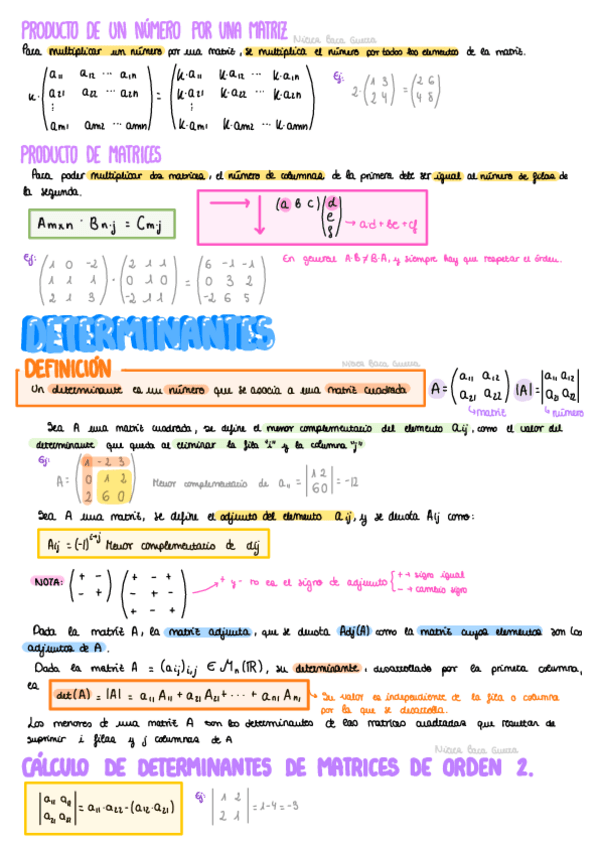 PRODUCTO DE UN NÚMERO POR UNA MATRIZ
Para multiplicar un número por una matriz, se multiplica el número por todos los elementos de la matriz.
k· (a11 a12 ··· a1n = (k·a11 k·a12 ··· k·a1n Ej: 2· (1 3 = (2 6
a21 a22 ··· a2n k·a21 k·a22 ··· k·a2n 2 4) 4 8)
⋮ ⋮
am1 am2 ··· amn) k·am1 k·am2 ··· k·amn)
PRODUCTO DE MATRICES
Para poder multiplicar dos matrices, el número de columnas de la primera debe ser igual al número de filas de
la segunda.
Amxn · Bn·j = Cm·j
→ ↓ (a b c) (d e f) → ad+be+cf
Ej: (1 0 -2 · (2 1 1 = (6 -1 -1 En general A·B≠B·A, y siempre hay que respetar el orden.
1 1 1 0 1 0 0 3 2
2 1 3) -2 1 1) -2 6 5)
DETERMINANTES
DEFINICIÓN
Un determinante es un número que se asocia a una matriz cuadrada
A = (a11 a12 |A| = |a11 a12
a21 a22) a21 a22|
↳ matriz ↳ número
Sea A una matriz cuadrada, se define el menor complementario del elemento aij, como el valor del
determinante que queda al eliminar la fila "i" y la columna "j"
Ej:
A= (1 -2 3
0 1 2 Menor complementario de a11 = |1 2
2 6 0) 6 0| = -12
Sea A una matriz, se define el adjunto del elemento aij, y se denota Aij como:
Aij = (-1)^i+j Menor complementario de aij
NOTA: (+ - (+ - + → + y - no es el signo de adjunto { + → signo igual
- +) - + - - → cambio signo
+ - +)
Dada la matriz A, la matriz adjunta, que se denota Adj(A) como la matriz cuyos elementos son los
adjuntos de A.
Dada la matriz A = (aij)i,j ∈ Mn(ℝ), su determinante, desarrollado por la primera columna,
es
det(A) = |A| = a11 A11 + a21 A21 + ··· + an1 An1
↳ Su valor es independiente de la fila o columna
por la que se desarrolla.
Los menores de una matriz A son los determinantes de las matrices cuadradas que resultan de
suprimir i filas y j columnas de A
CÁLCULO DE DETERMINANTES DE MATRICES DE ORDEN 2.
|a11 a12 = a11·a22-(a12·a21) Ej: |1 2 = 1-4 = -3
a21 a22| 2 1|